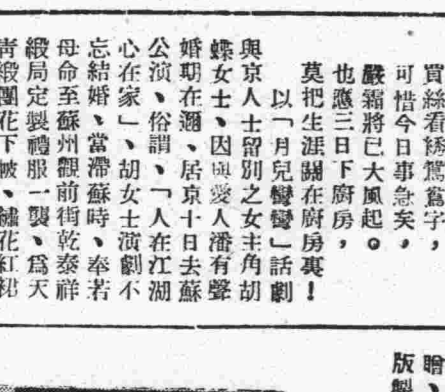 買絲看繡鴛鴦字，
可惜今日事急矣，
嚴霜將已大風起。
也應三日下廚房，
莫把生涯關在廚房裏！
以「月兒彎彎」話劇
與京人士留別之女主角胡
蝶女士、因與愛人潘有聲
婚期在邇、居京十日去蘇
公演、俗謂、「人在江湖
心在家」、胡女士演劇不
忘結婚、當滯蘇時、奉若
母命至蘇州觀前街乾泰祥
緞局定製禮服一襲、爲天
青緞團花下帔、繡花紅裙
贈、
版製